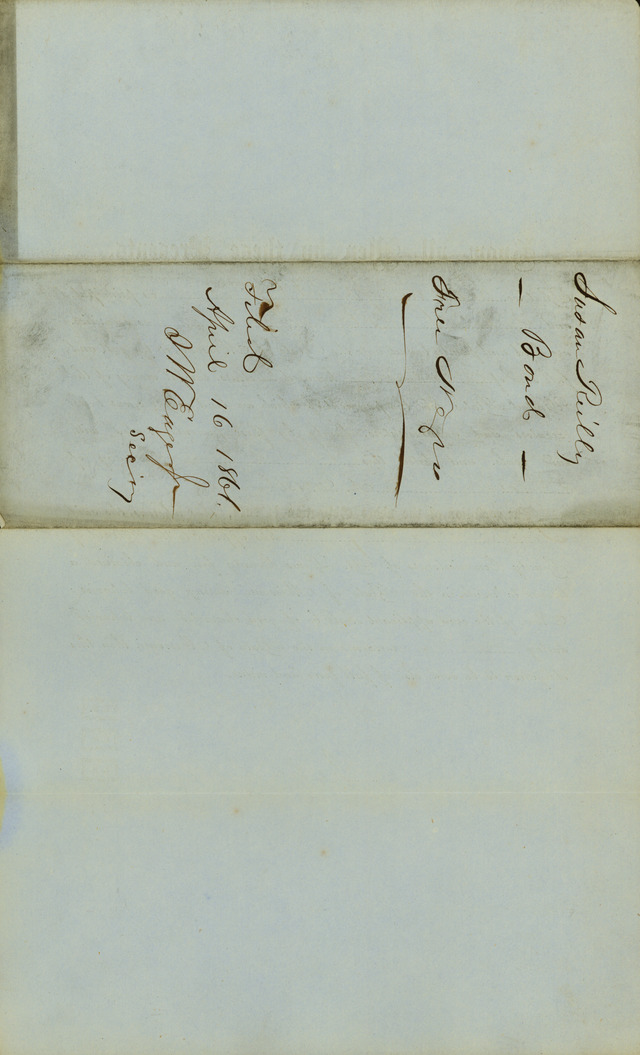 Susan Reilly
— Bond —
Free Negro
Filed
April 16 1861.